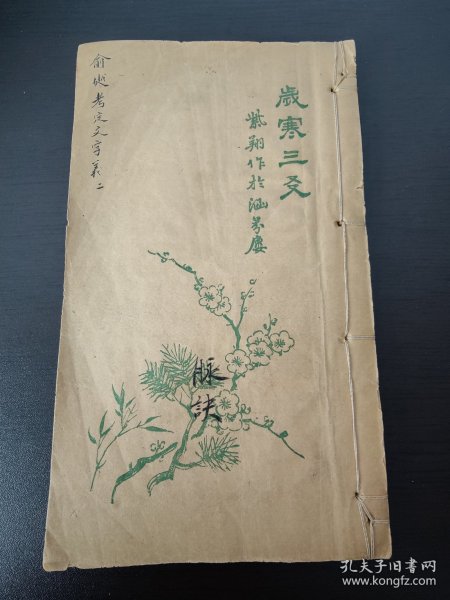 歲寒三友
紫翔作於涵芬廔
俞曲園考定文字義二
脉訣
孔夫子旧书网
www.kongfz.com